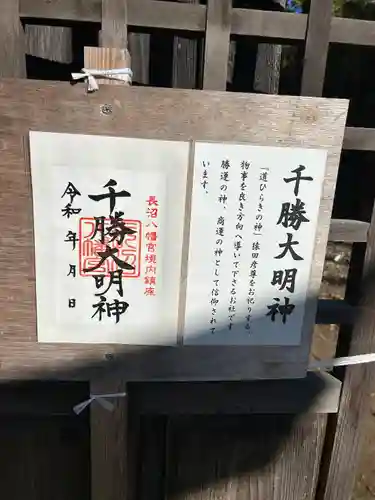 千勝大明神
「道ひらきの神」猿田彦尊をお祀りする
物事を良き方向へ導いて下さるお社です
勝運の神、商運の神として信仰されて
います。
長沼八幡宮境内鎮座
千勝大明神
令和　年　月　日